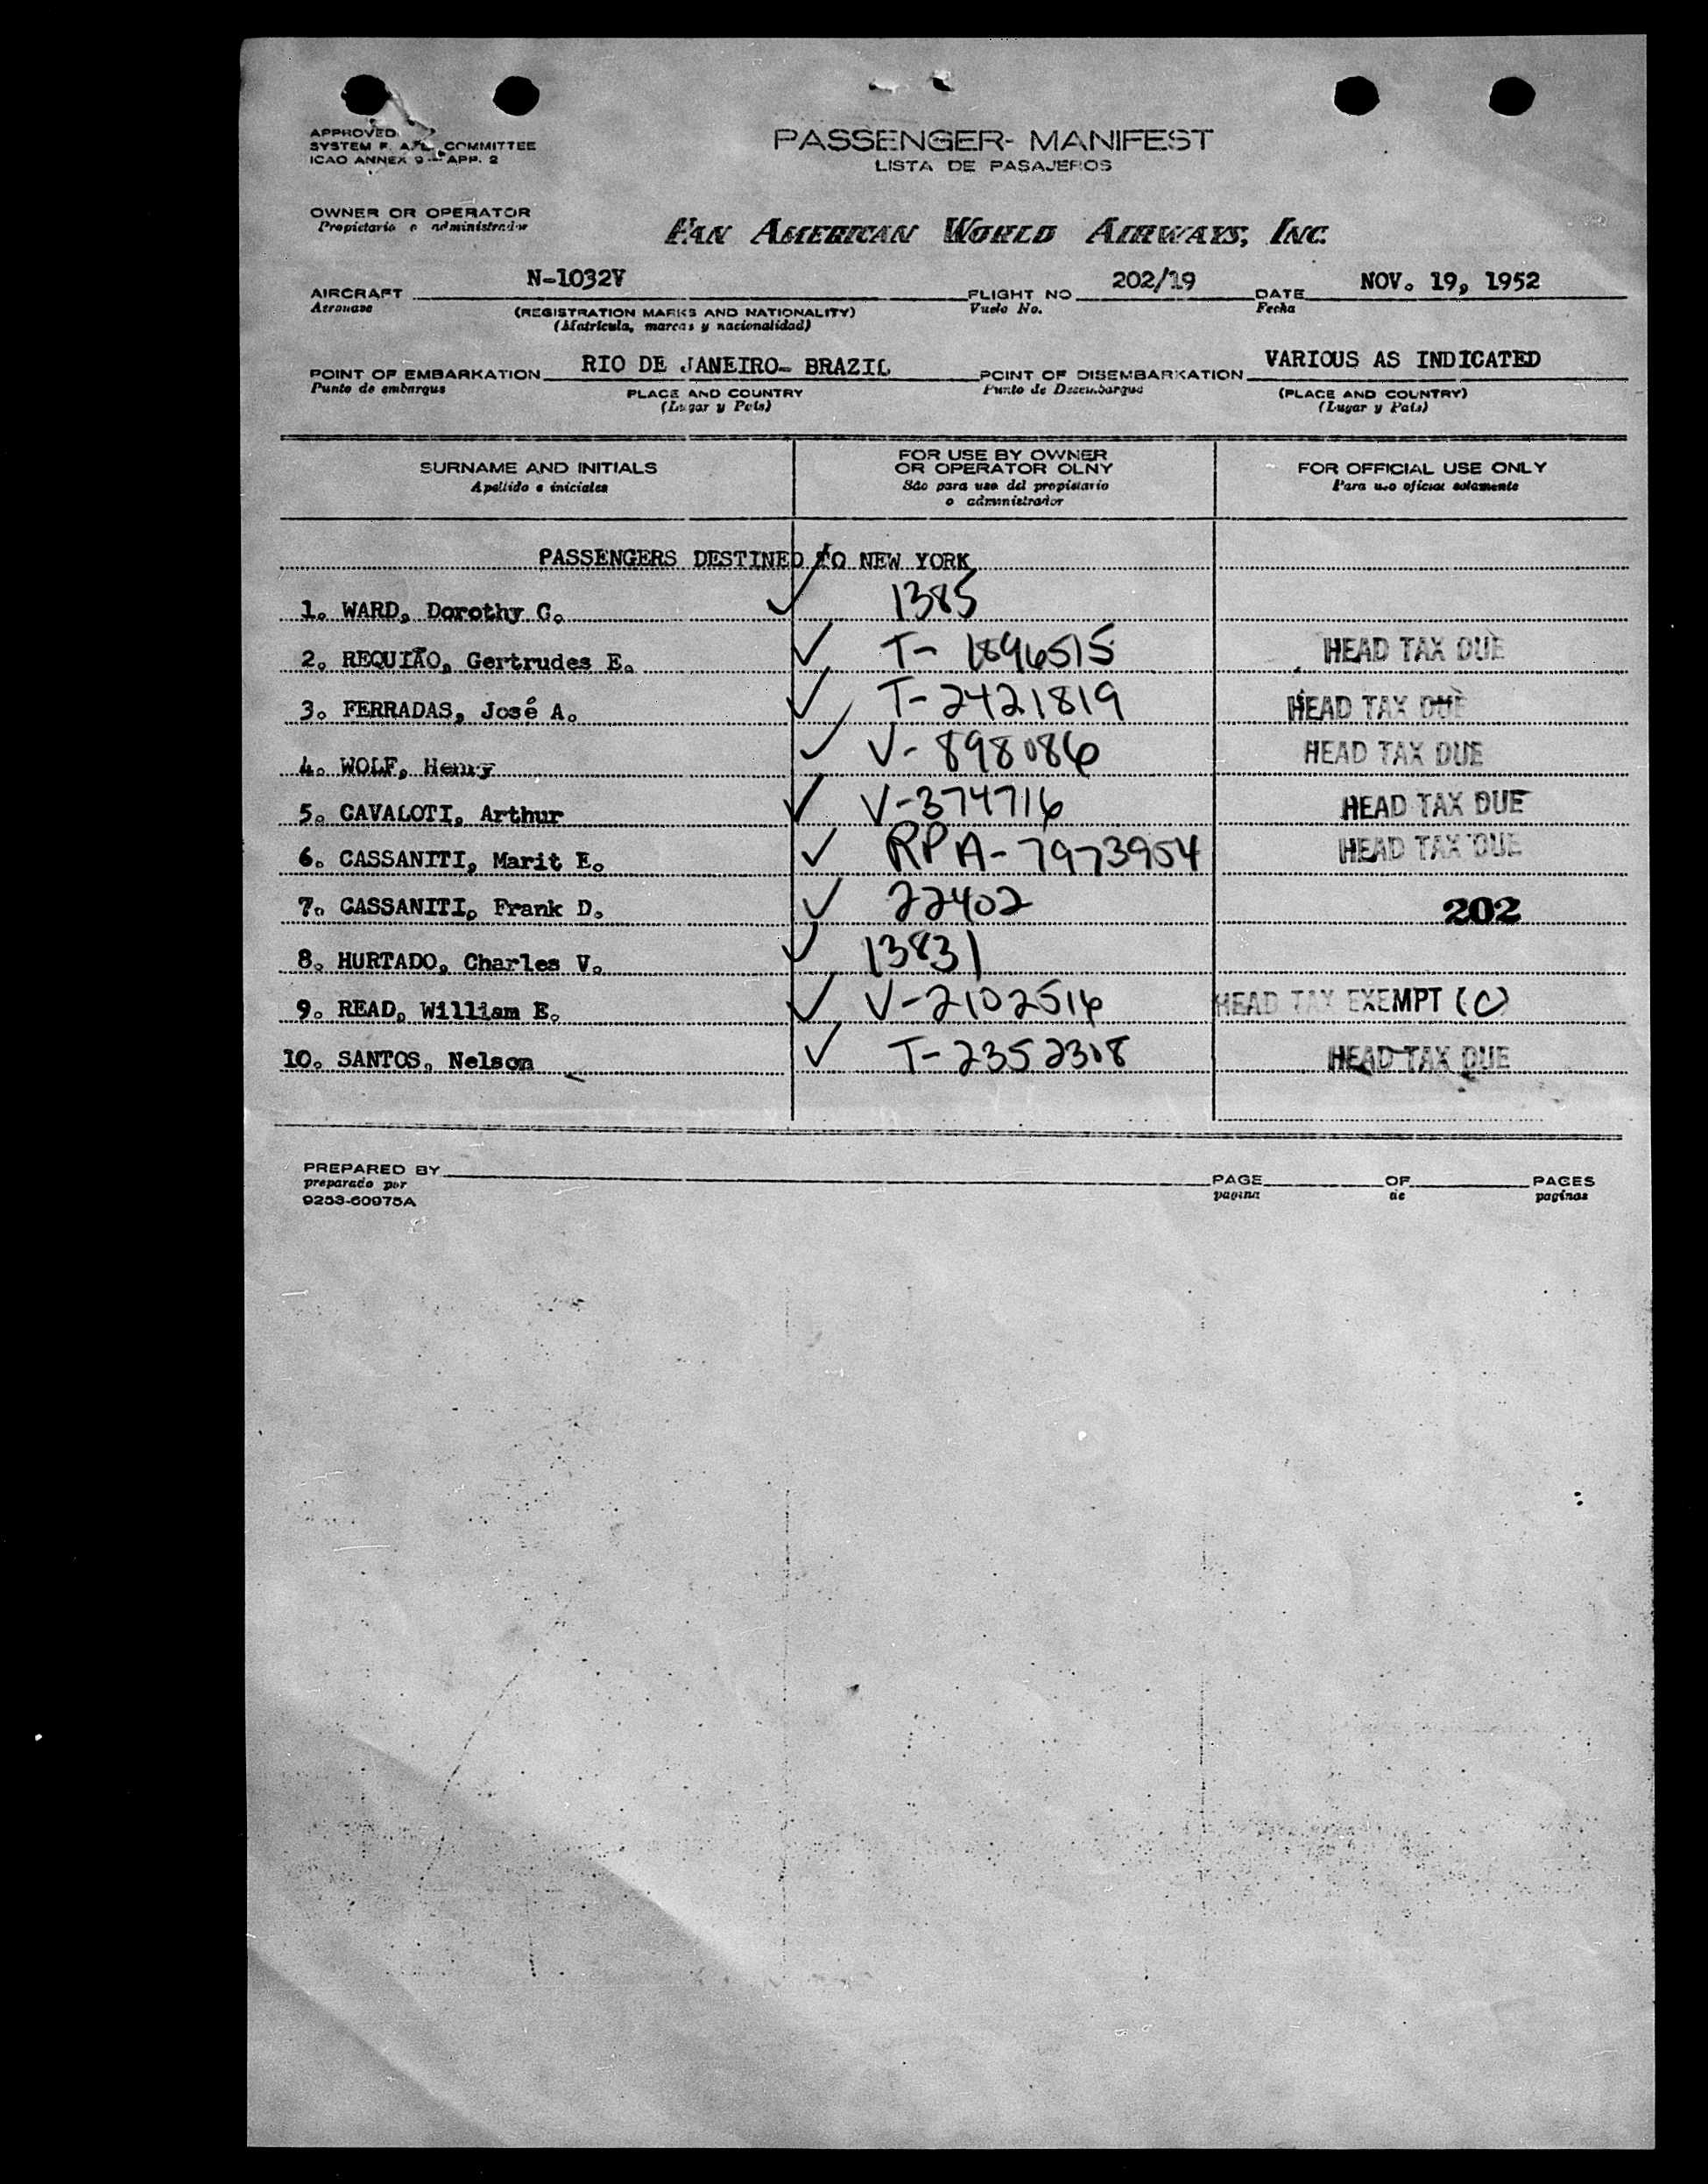 APPROVED
SYSTEM F. A. L. COMMITTEE
ICAO ANNEX 9 — APP. 2
PASSENGER- MANIFEST
LISTA DE PASAJEROS
OWNER OR OPERATOR
Propietario o administrador
PAN AMERICAN WORLD AIRWAYS, INC.
AIRCRAFT N-1032V FLIGHT NO 202/19 DATE NOV. 19, 1952
Aeronave (REGISTRATION MARKS AND NATIONALITY) Vuelo No. Fecha
(Matrícula, marcas y nacionalidad)
POINT OF EMBARKATION RIO DE JANEIRO- BRAZIL POINT OF DISEMBARKATION VARIOUS AS INDICATED
Punto de embarque PLACE AND COUNTRY Punto de Desembarque (PLACE AND COUNTRY)
(Lugar y País) (Lugar y País)
SURNAME AND INITIALS FOR USE BY OWNER OR OPERATOR OLNY FOR OFFICIAL USE ONLY
Apellido e iniciales Sáo para uso del propietario o administrador Para uso oficial solamente
PASSENGERS DESTINED TO NEW YORK
1. WARD, Dorothy C. ✓ 1385
2. REQUIÃO, Gertrudes E. ✓ T- 1896515 HEAD TAX DUE
3. FERRADAS, José A. ✓ T-2421819 HEAD TAX DUE
4. WOLF, Henry ✓ V-898086 HEAD TAX DUE
5. CAVALOTI, Arthur ✓ V-374716 HEAD TAX DUE
6. CASSANITI, Marit E. ✓ RPA-7973954 HEAD TAX DUE
7. CASSANITI, Frank D. ✓ 22402 202
8. HURTADO, Charles V. ✓ 13831
9. READ, William E. ✓ V-2102516 HEAD TAX EXEMPT (C)
10. SANTOS, Nelson ✓ T-2352308 HEAD TAX DUE
PREPARED BY PAGE OF PAGES
preparado por pagina de paginas
9253-60975A